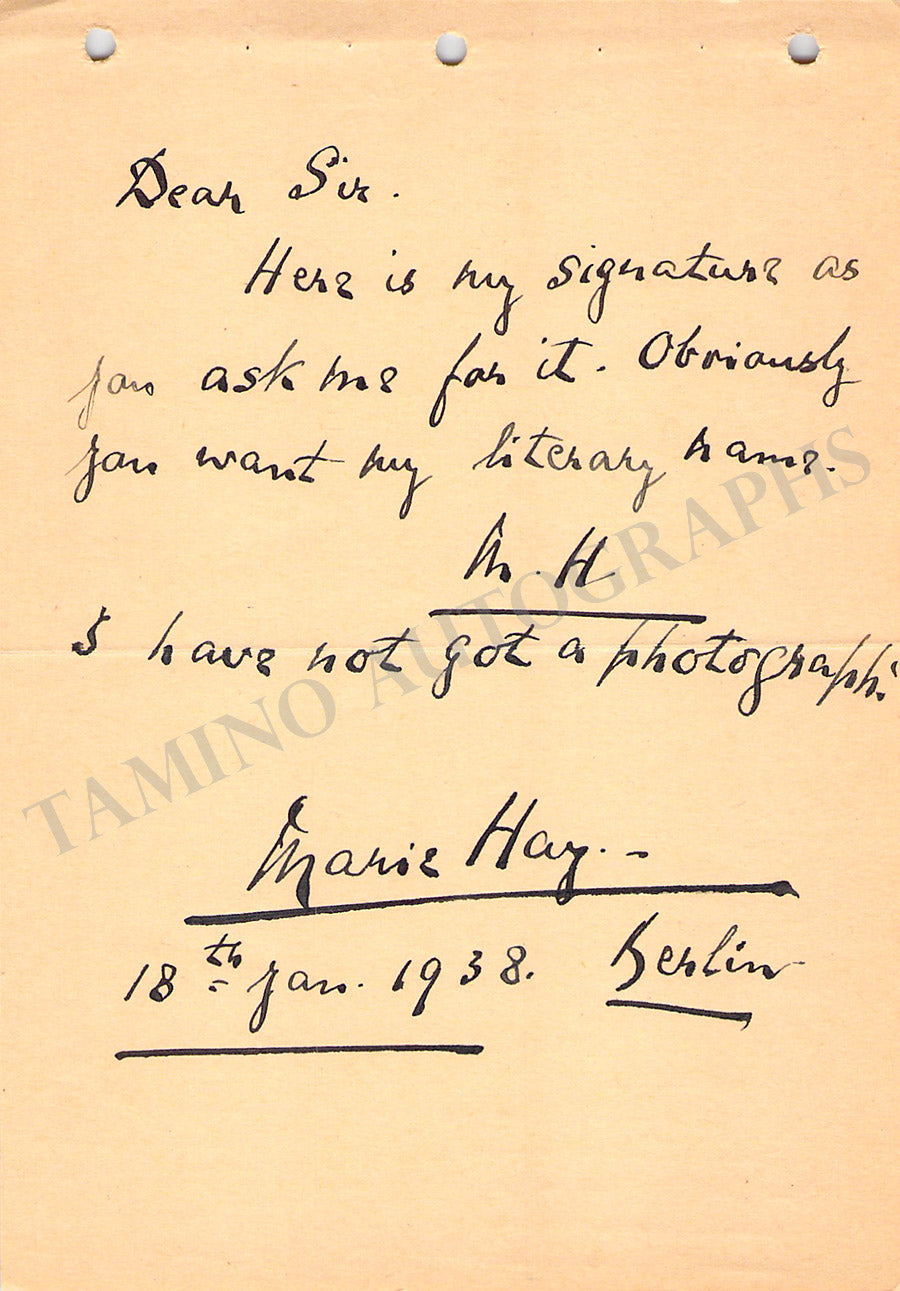 Dear Sir.
Here is my signature as
you ask me for it. Obviously
you want my literary name.
M. H
I have not got a photograph.
TAMINO AUTOGRAPHS
Marie Hay. -
18th Jan. 1938. Berlin